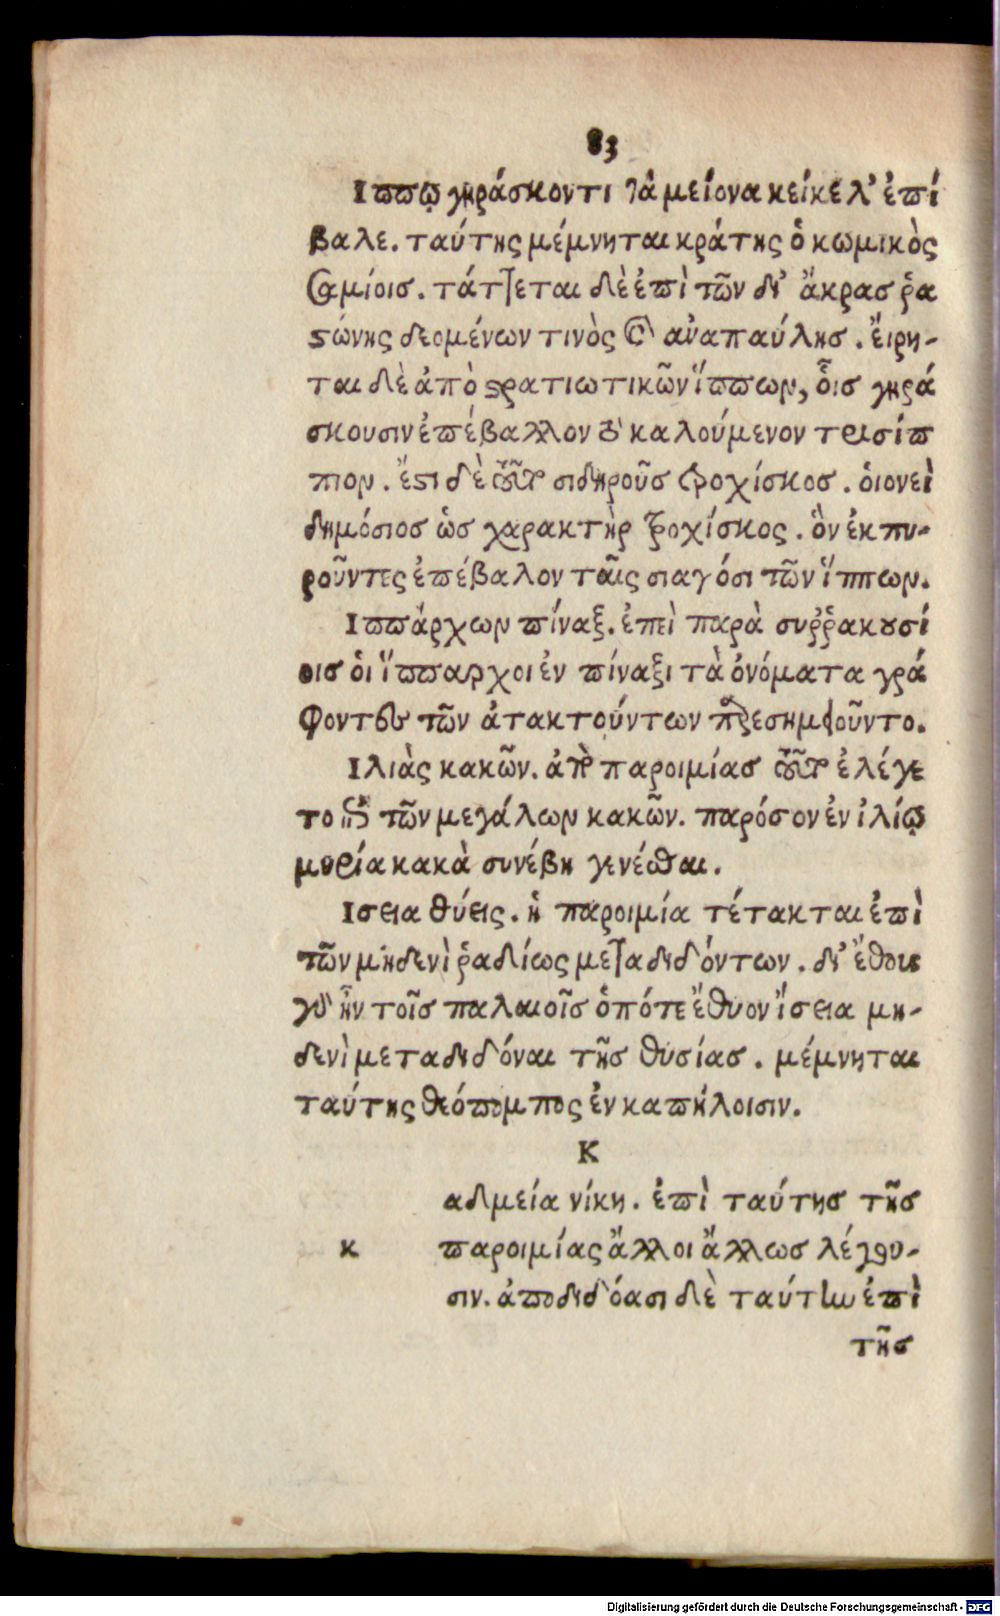 83
Ἵππῳ γηράσκοντι τὰ μείονα κείκελ' ἐπί
βαλε. ταύτης μέμνηται κράτης ὁ κωμικὸς
Σαμίοις. τάττεται δὲ ἐπὶ τῶν δι' ἄκρας ῥα
στώνης δεομένων τινὸς καὶ ἀναπαύλης. ἔιρη-
ται δὲ ἀπὸ στρατιωτικῶν ἵππων, οἷς γηρά
σκουσιν ἐπέβαλλον τὸ καλούμενον τρισίπ
πιον. ἔστι δὲ οὗτος σιδηροῦς τροχίσκος. ὁιονεὶ
δημόσιος ὡς χαρακτὴρ τροχίσκος. ὃν ἐκπυ-
ροῦντες ἐπέβαλον ταῖς σιαγόσι τῶν ἵππων.
Ἱππάρχων πίναξ. ἐπεὶ παρὰ συῤῥακουσί
οις ὁι ἵππαρχοι ἐν πίναξι τὰ ὀνόματα γρά
φοντες τῶν ἀτακτούντων παρεσημειοῦντο.
Ἰλιὰς κακῶν. ἀπὸ παροιμίας οὗτος ἐλέγε
το ἐπὶ τῶν μεγάλων κακῶν. παρόσον ἐν ἰλίῳ
μυρία κακὰ συνέβη γενέσθαι.
Ισεια θύεις. ἡ παροιμία τέτακται ἐπὶ
τῶν μηδενὶ ῥαδίως μεταδιδόντων. δι' ἔθους
γὰρ ἦν τοῖς παλαιοῖς ὁπότε ἔθυον ἴσεια μη-
δενὶ μεταδιδόναι τῆς θυσίας. μέμνηται
ταύτης θεόπομπος ἐν καπήλοισιν.
Κ
αδμεία νίκη. ἐπὶ ταύτης τῆς
κ παροιμίας ἄλλοι ἄλλως λέγου-
σιν. ἀποδιδόασι δὲ ταύτην ἐπὶ
τῆς
Digitalisierung gefördert durch die Deutsche Forschungsgemeinschaft - DFG